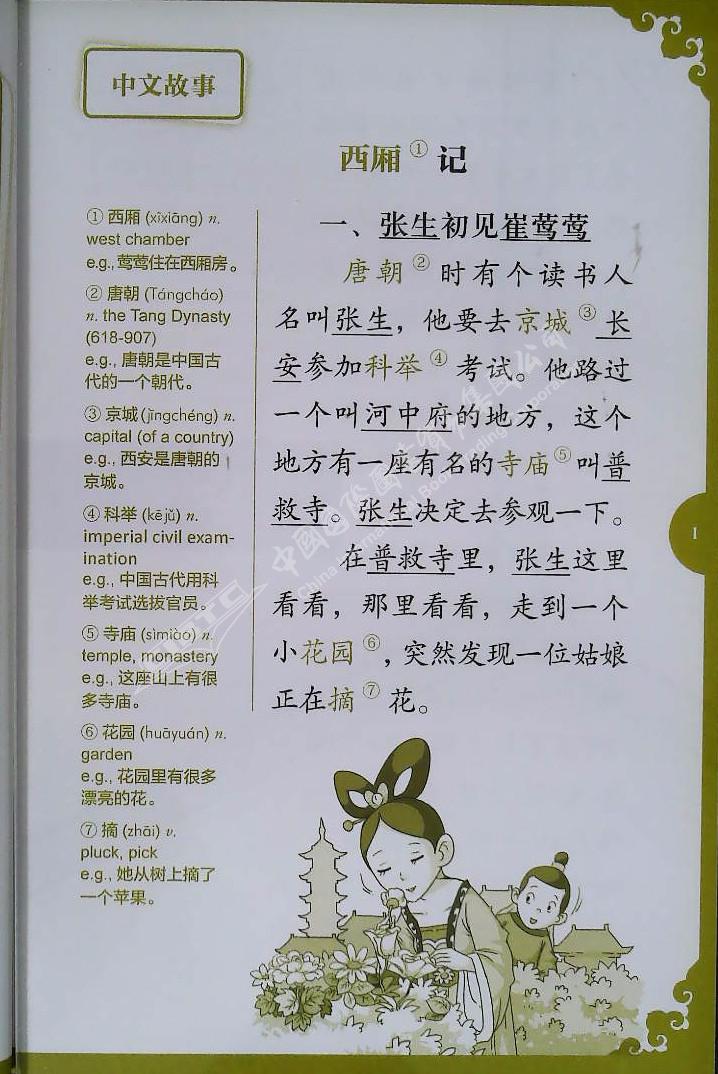 中文故事
西厢①记
① 西厢 (xīxiāng) n.
west chamber
e.g., 莺莺住在西厢房。
② 唐朝 (Tángcháo)
n. the Tang Dynasty
(618-907)
e.g., 唐朝是中国古
代的一个朝代。
③ 京城 (jīngchéng) n.
capital (of a country)
e.g., 西安是唐朝的
京城。
④ 科举 (kējǔ) n.
imperial civil exam-
ination
e.g., 中国古代用科
举考试选拔官员。
⑤ 寺庙 (sìmiào) n.
temple, monastery
e.g., 这座山上有很
多寺庙。
⑥ 花园 (huāyuán) n.
garden
e.g., 花园里有很多
漂亮的花。
⑦ 摘 (zhāi) v.
pluck, pick
e.g., 她从树上摘了
一个苹果。
一、张生初见崔莺莺
唐朝②时有个读书人
名叫张生，他要去京城③长
安参加科举④考试。他路过
一个叫河中府的地方，这个
地方有一座有名的寺庙⑤叫普
救寺。张生决定去参观一下。
在普救寺里，张生这里
看看，那里看看，走到一个
小花园⑥，突然发现一位姑娘
正在摘⑦花。
1